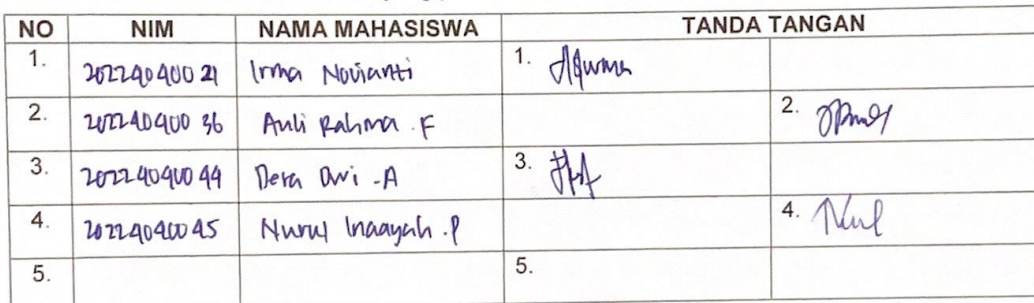 NO NIM NAMA MAHASISWA TANDA TANGAN
1. 20224040021 Irma Novianti 1.
2. 20224040036 Auli Rahma .F 2.
3. 20224040044 Dera Dwi .A 3.
4. 20224040045 Nurul Inaayah .P 4.
5. 5.